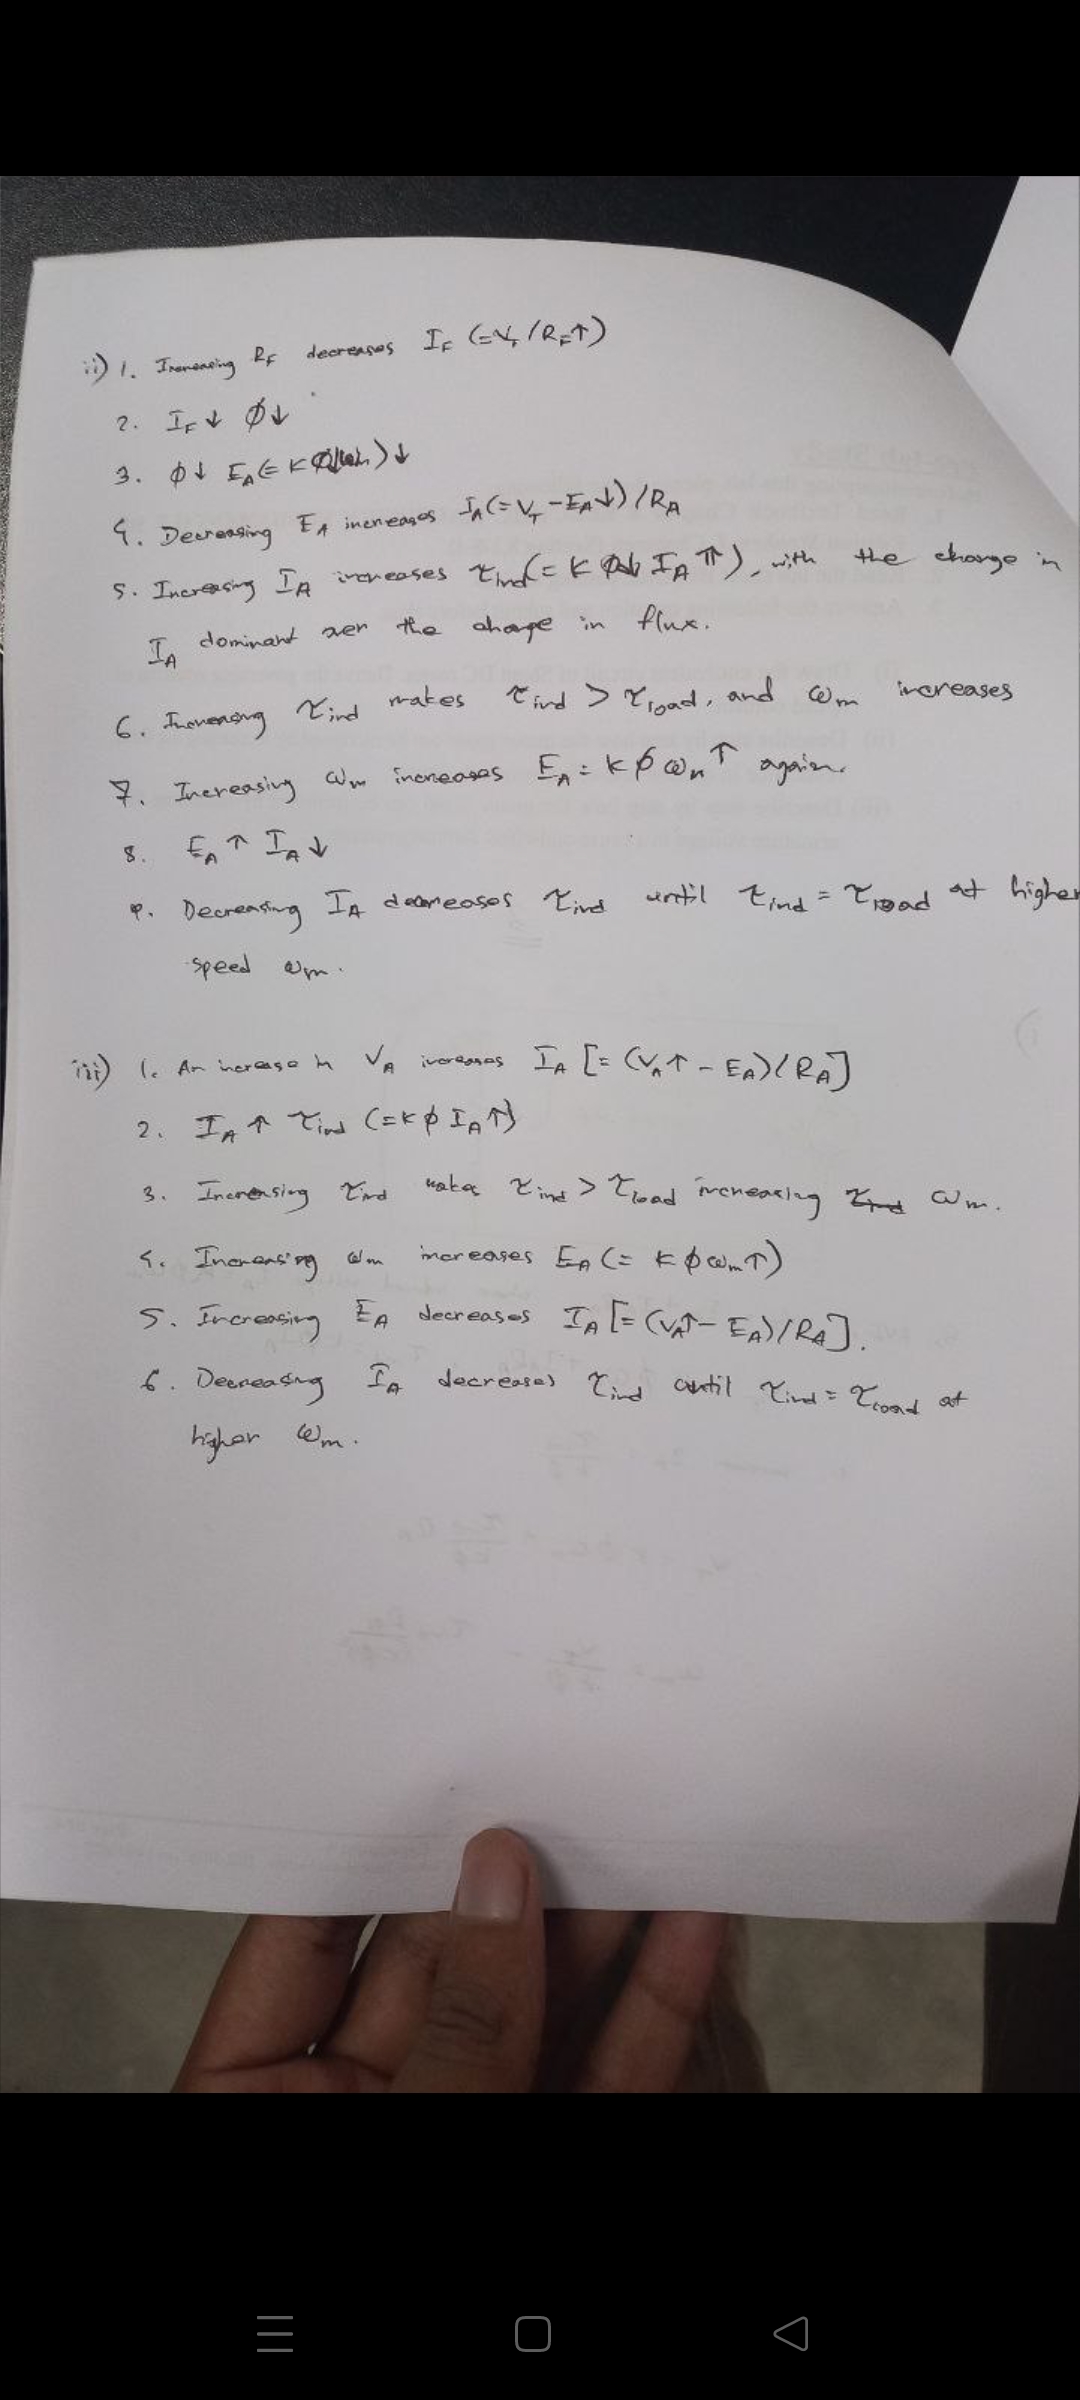 ii) 1. Increasing R_F decreases I_F (=V_T/R_F↑)
2. I_F↓ φ↓
3. φ↓ E_A(=Kφ↓ω_m)↓
4. Decreasing E_A increases I_A(=V_T-E_A↓)/R_A
5. Increasing I_A increases τ_ind(=Kφ↓I_A⇑), with the change in
I_A dominant over the change in flux.
6. Increasing τ_ind makes τ_ind > τ_load, and ω_m increases
7. Increasing ω_m increases E_A = Kφω_m↑ again.
8. E_A↑ I_A↓
9. Decreasing I_A decreases τ_ind until τ_ind = τ_load at higher
speed ω_m.
iii) 1. An increase in V_A increases I_A [= (V_A↑ - E_A)/R_A]
2. I_A↑ τ_ind (=KφI_A↑)
3. Increasing τ_ind makes τ_ind > τ_load increasing τ_ind ω_m.
4. Increasing ω_m increases E_A (= Kφω_m↑)
5. Increasing E_A decreases I_A [= (V_A↑ - E_A)/R_A].
6. Decreasing I_A decreases τ_ind until τ_ind = τ_load at
higher ω_m.